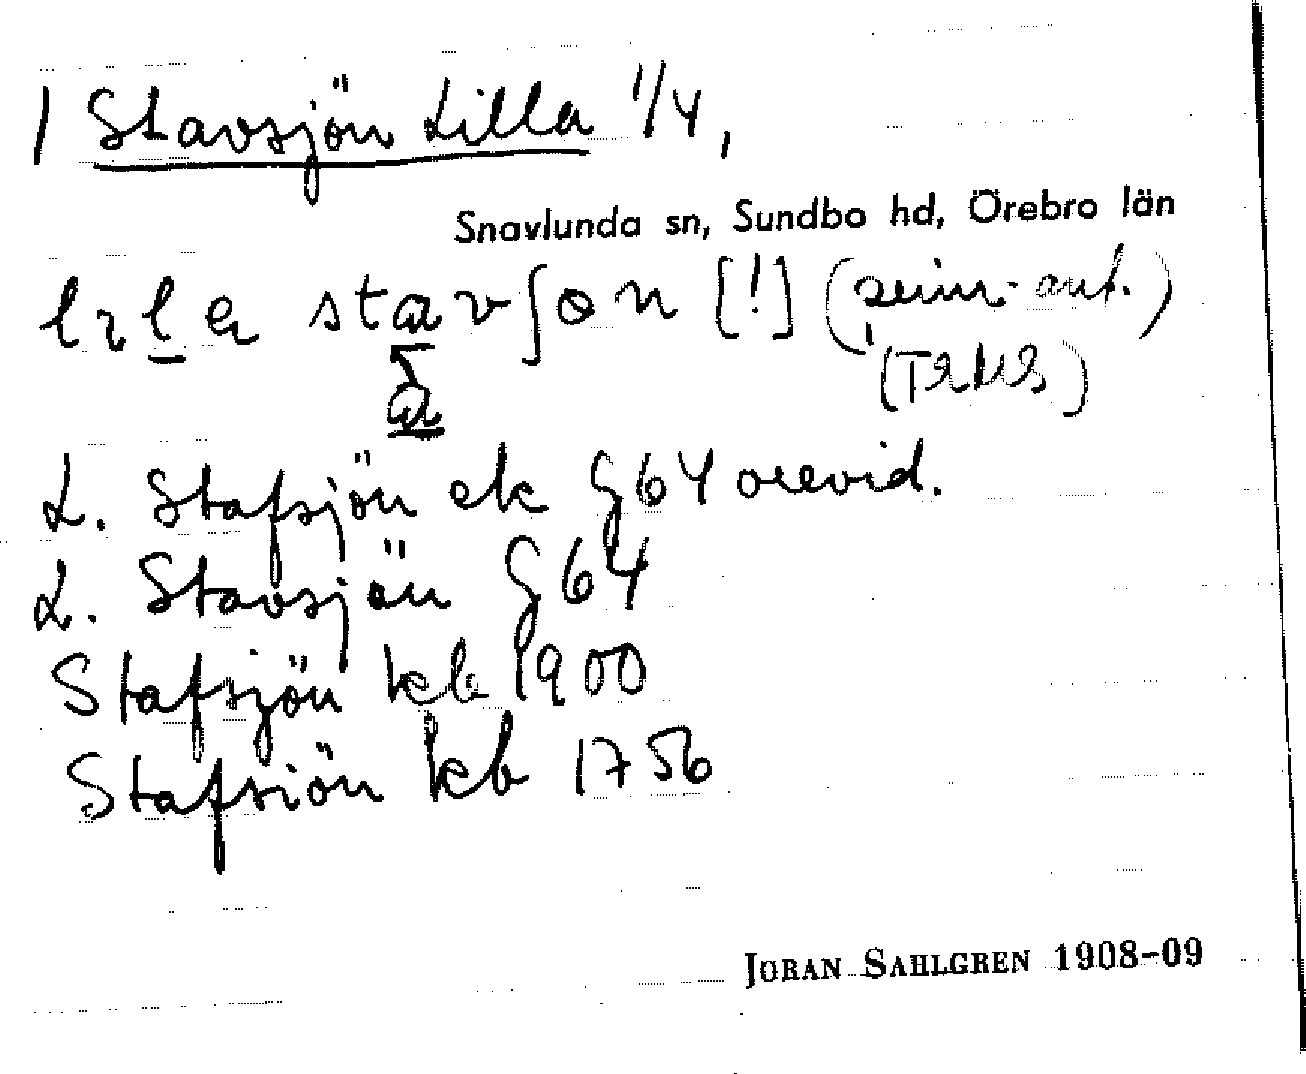 1 Stavsjön Lilla 1/4,
Snavlunda sn, Sundbo hd, Örebro län
stavʃɵn [!]
L. Stafsjön ek G64 orevid.
L. Stavsjön G64
Stafsjön kb 1900
Stafsiön kb 1756
JORAN SAHLGREN 1908-09